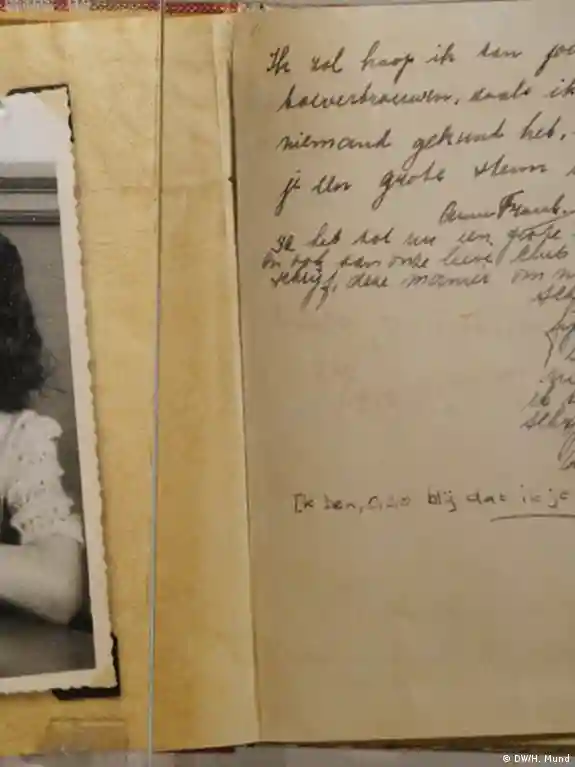 Ik zal hoop ik aan jou
toevertrouwen, zoals ik
niemand gekund heb,
je een grote steun
Anne Frank
Ik heb tot nu een grote
en ook aan onze lieve club
schrijf, deze manier om
Ik ben, O, zo blij dat ik je
© DW/H. Mund